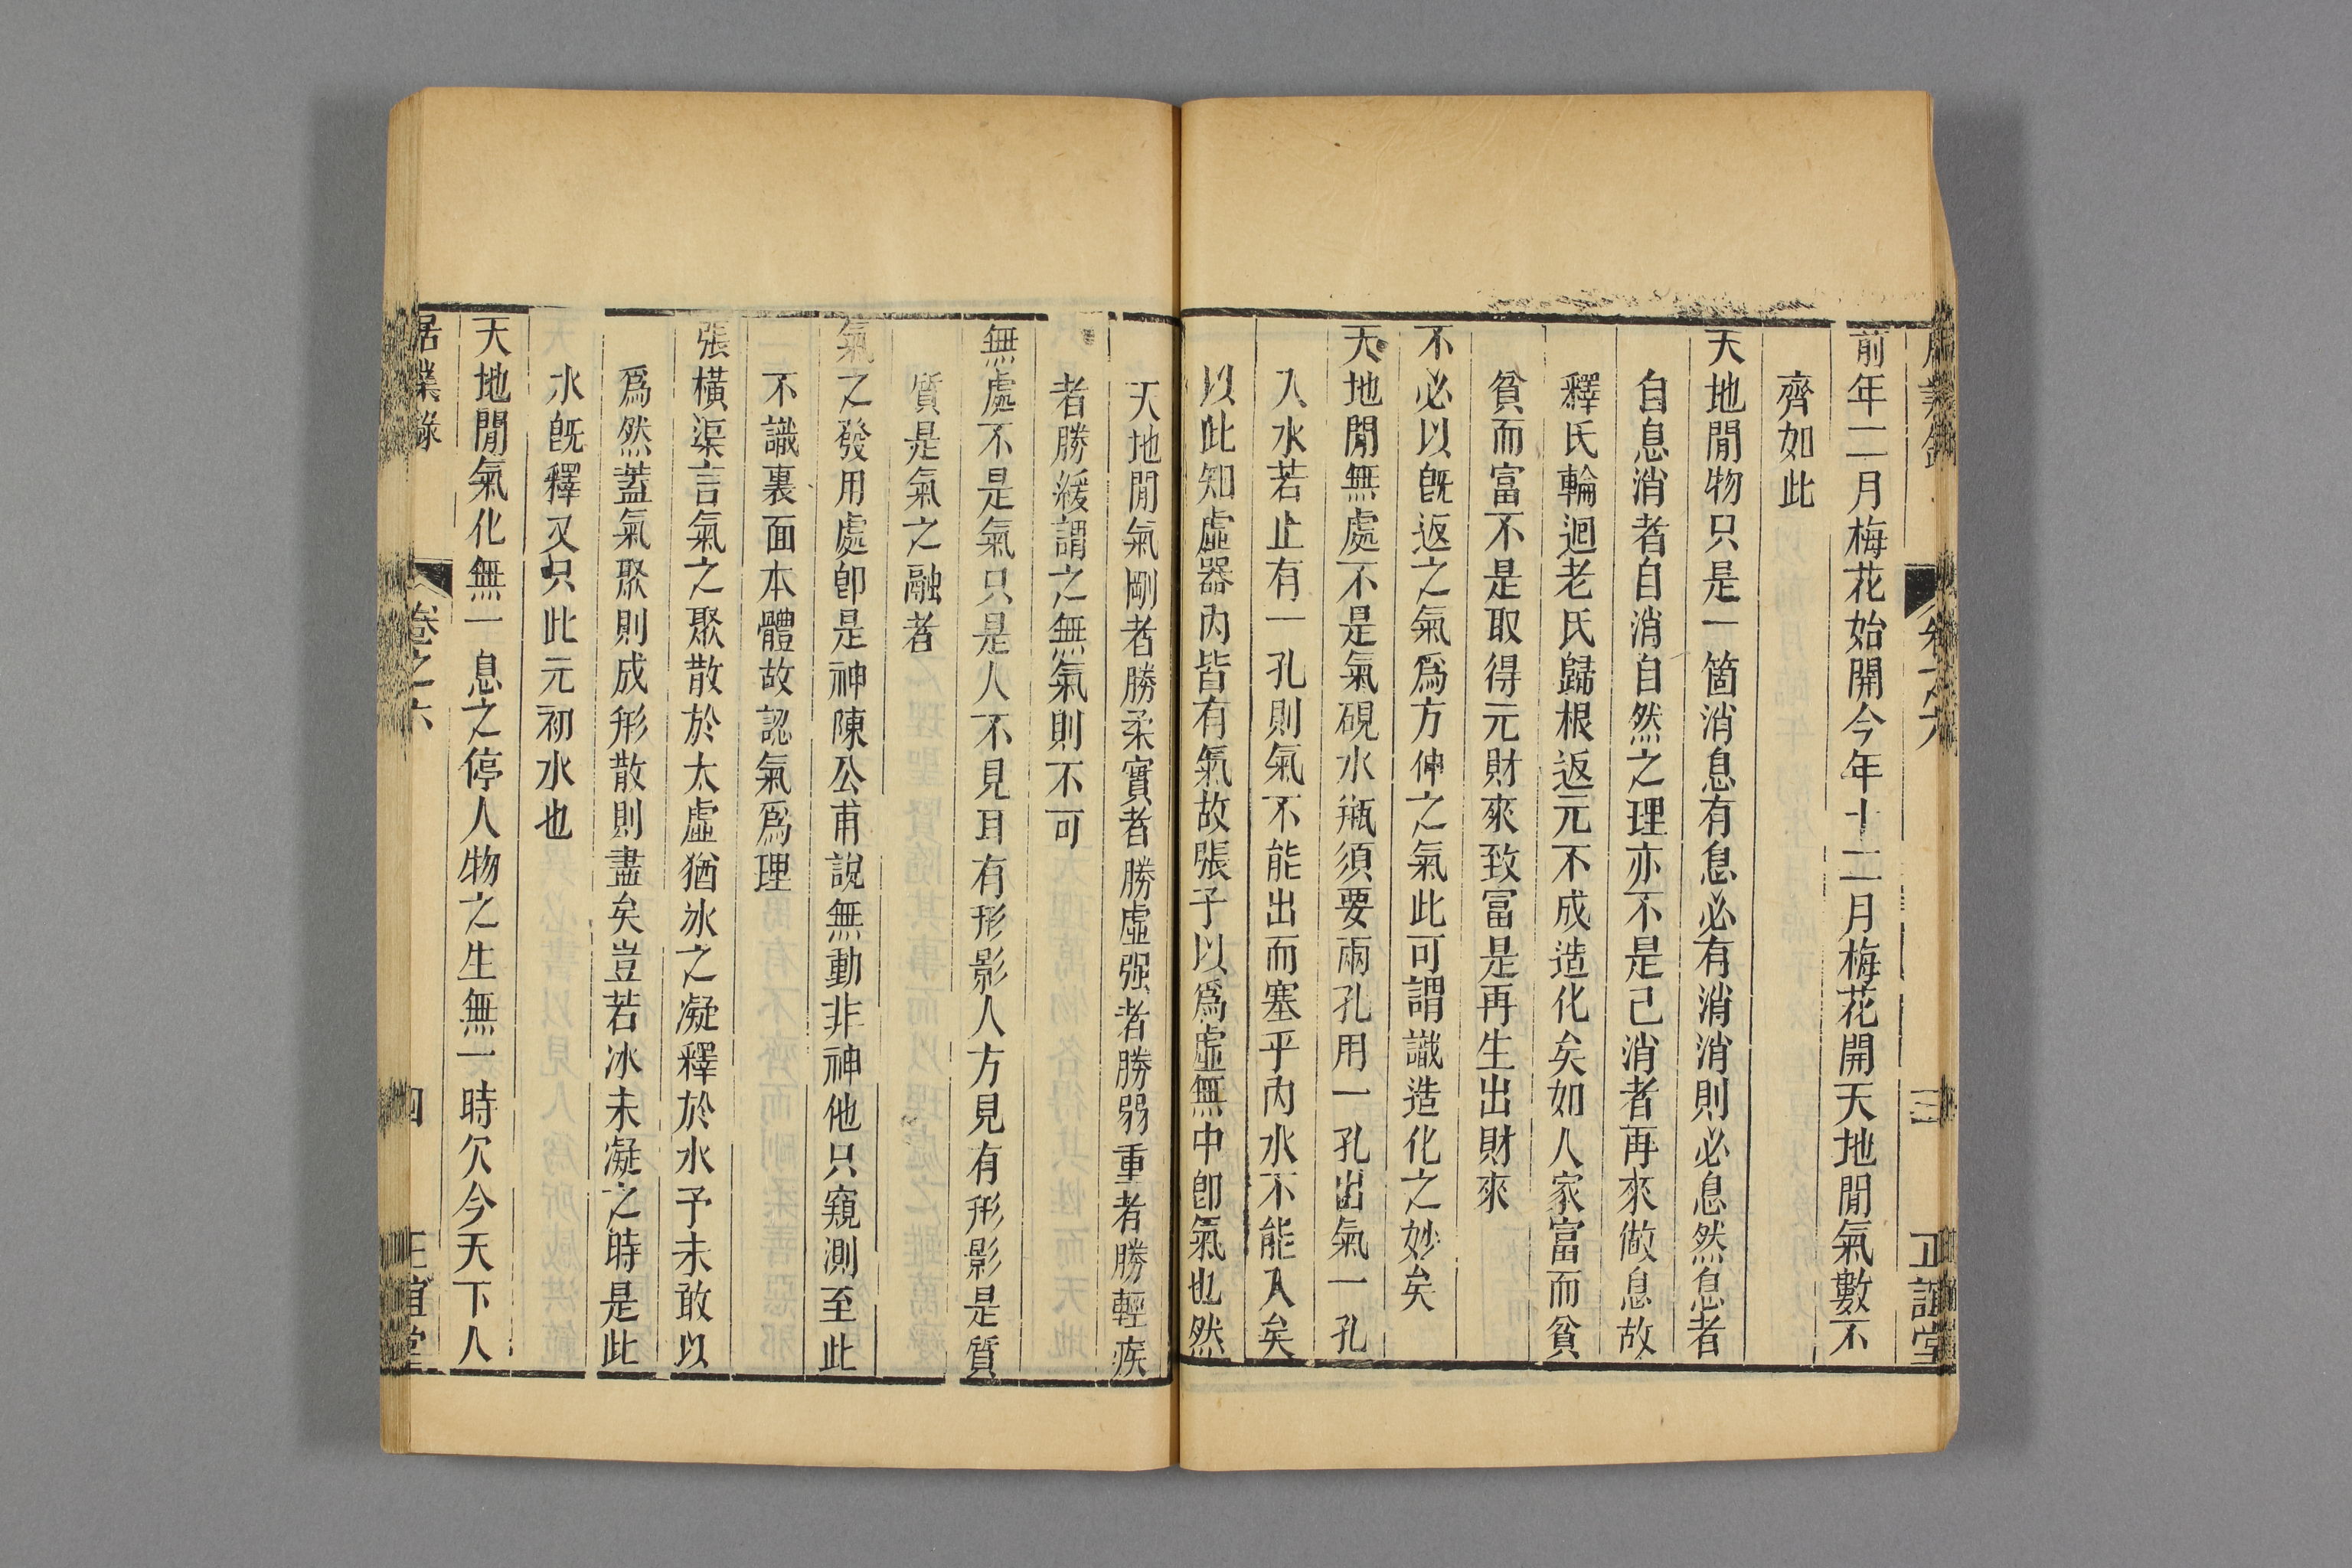 居業錄 卷之六 三 正誼堂
前年二月梅花始開今年十二月梅花開天地閒氣數不
齊如此
天地閒物只是一箇消息有息必有消消則必息然息者
自息消者自消自然之理亦不是已消者再來做息故
釋氏輪迴老氏歸根返元不成造化矣如人家富而貧
貧而富不是取得元財來致富是再生出財來
不必以旣返之氣爲方伸之氣此可謂識造化之妙矣
天地閒無處不是氣硯水瓶須要兩孔用一孔出氣一孔
入水若止有一孔則氣不能出而塞乎內水不能入矣
以此知虛器內皆有氣故張子以爲虛無中卽氣也然
天地閒氣剛者勝柔實者勝虛强者勝弱重者勝輕疾
者勝緩謂之無氣則不可
無處不是氣只是人不見耳有形影人方見有形影是質
質是氣之融者
氣之發用處卽是神陳公甫說無動非神他只窺測至此
不識裏面本體故認氣爲理
張橫渠言氣之聚散於太虛猶冰之凝釋於水予未敢以
爲然蓋氣聚則成形散則盡矣豈若冰未凝之時是此
水旣釋又只此元初水也
天地閒氣化無一息之停人物之生無一時欠今天下人
居業錄 卷之六 四 正誼堂